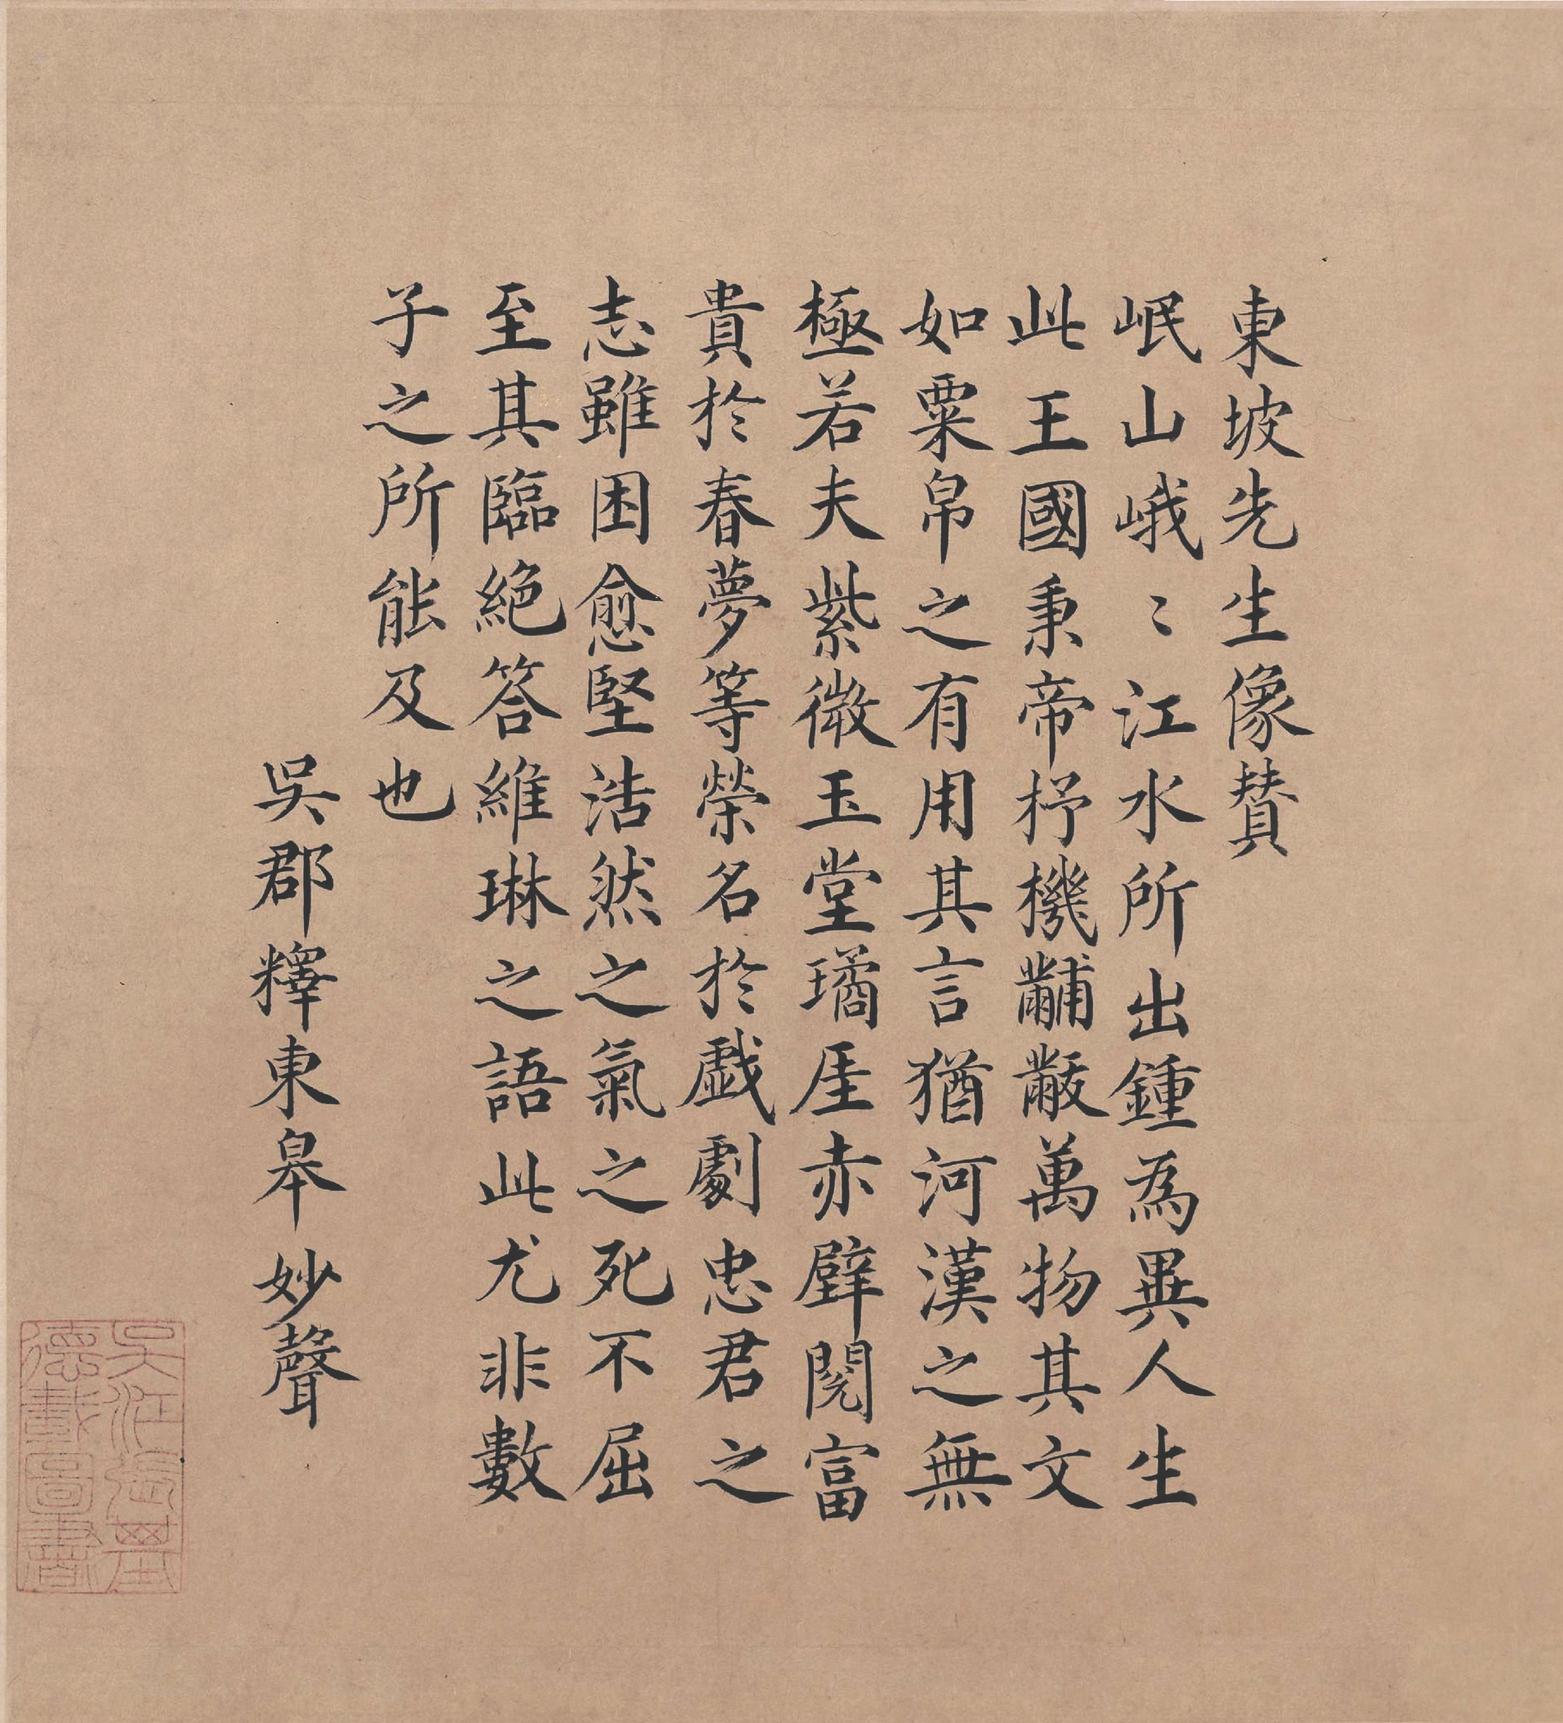 東坡先生像賛
岷山峨〻江水所出鍾為異人生
此王國秉帝杼機黼黻萬物其文
如粟帛之有用其言猶河漢之無
極若夫紫微玉堂璚厓赤壁閱富
貴於春夢等榮名於戲劇忠君之
志雖困愈堅浩然之氣之死不屈
至其臨絕答維琳之語此尤非數
子之所能及也
吳郡釋東皋妙聲
吳江張
德載圖書